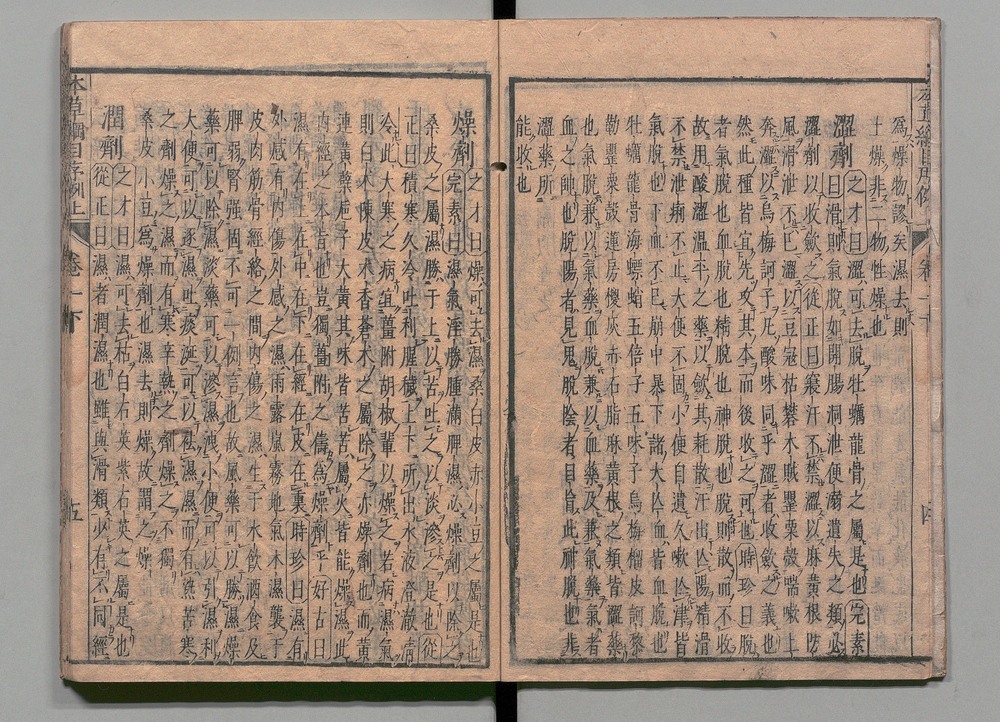 爲燥物謬矣濕去則
土燥非二物性燥也
澀劑 之才曰澀可去脫牡蠣龍骨之屬是也 完素
曰滑則氣脫如開腸洞泄便溺遺失之類必
澀劑以收斂之 從正曰寢汗不禁澀以麻黃根防
風滑泄不已澀以豆寇枯礬木賊罌粟殼喘嗽上
奔澀以烏梅訶子凡酸味同乎澀者收斂之義也
然此種皆宜先攻其本而後收之可也 時珍曰脫
者氣脫也血脫也精脫也神脫也脫則散而不收
故用酸澀溫平之藥以斂其耗散汗出亾陽精滑
不禁泄痢不止大便不固小便自遺久嗽亾津皆
氣脫也下血不已崩中暴下諸大亾血皆血脫也
牡蠣龍骨海螵蛸五倍子五味子烏梅榴皮訶黎
勒罌粟殼蓮房㯶灰赤石脂麻黃根之類皆澀藥
也氣脫兼以氣藥血脫兼以血藥及兼氣藥氣者
血之帥也脫陽者見鬼脫陰者目盲此神脫也非
澀藥所
能收也
燥劑 之才曰燥可去濕桑白皮赤小豆之屬是也
完素曰濕氣淫勝腫滿脾濕必燥劑以除之
桑皮之屬濕勝于上以苦吐之以淡滲之是也 從
正曰積寒久冷吐利腥穢上下所出水液澄澈清
冷此大寒之病宜薑附胡椒輩以燥之若病濕氣
則白朮陳皮木香蒼朮之屬除之亦燥劑也而黃
連黃蘗梔子大黃其味皆苦苦屬火皆能燥濕此
內經之本旨也豈獨薑附之儔爲燥劑乎 好古曰
濕有在上在中在下在經在皮在裏 時珍曰濕有
外感有內傷外感之濕雨露嵐霧地氣水濕襲于
皮肉筋骨經絡之間內傷之濕生于水飲酒食及
脾弱腎强固不可一例言也故風藥可以勝濕燥
藥可以除濕淡藥可以滲濕洩小便可以引濕利
大便可以逐濕吐痰涎可以袪濕濕而有熱苦寒
之劑燥之濕而有寒辛熱之劑燥之不獨
桑皮小豆爲燥劑也濕去則燥故謂之燥
潤劑 之才曰濕可去枯白石英紫石英之屬是也
從正曰濕者潤濕也雖與滑類少有不同經
本草綱目序例上
卷一下
五